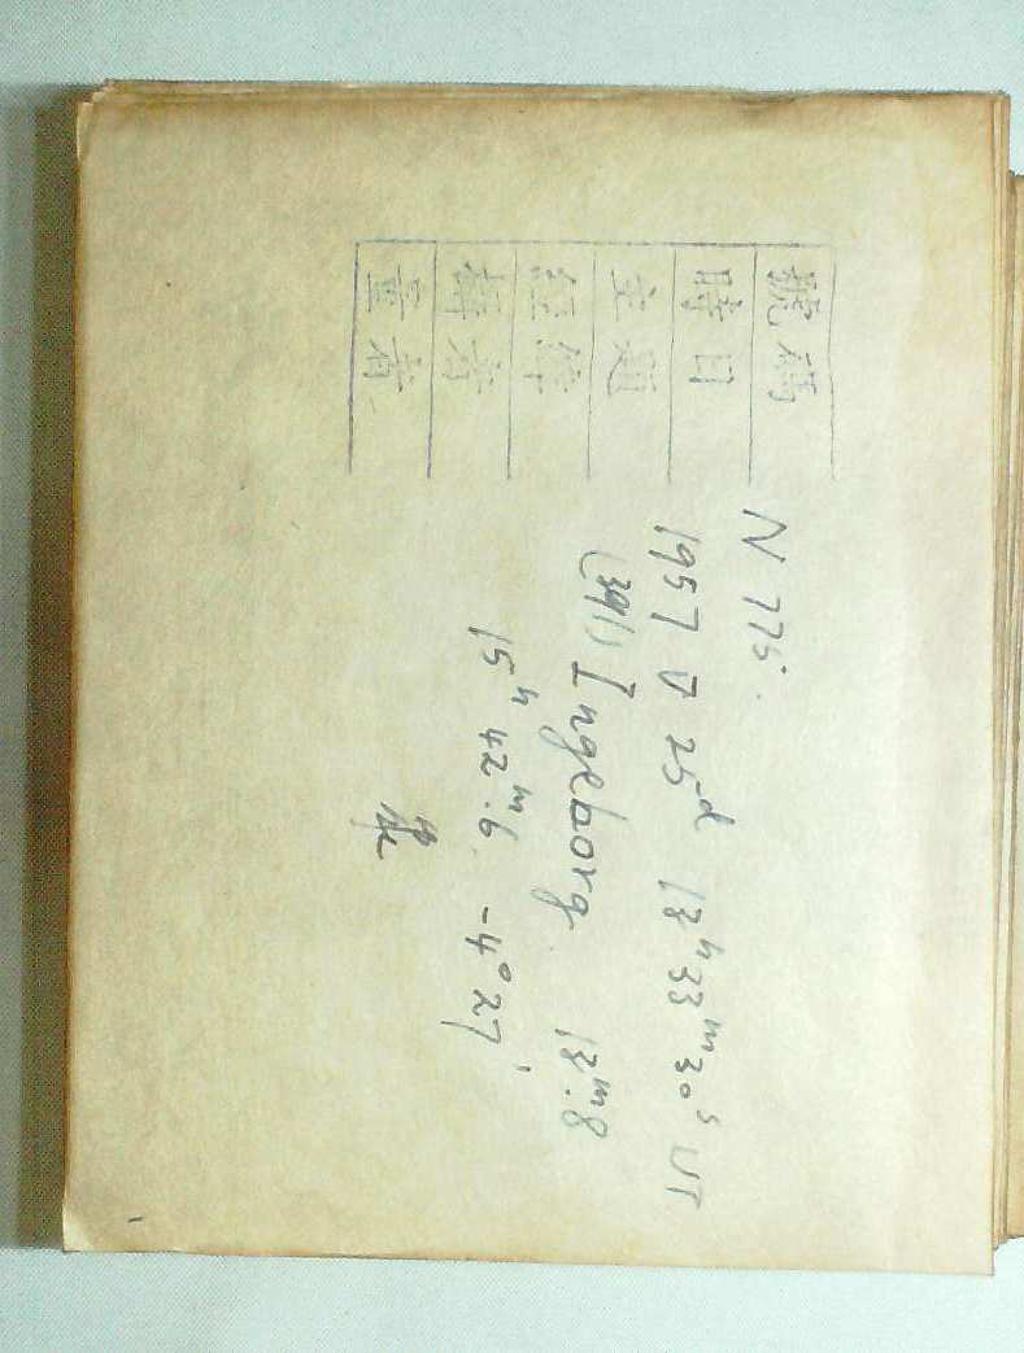 號碼 N 775.
時日 1957 V 25d 13h33m30s UT
主題 (391) Ingeborg 13m.8
經緯 15h 42m.6 -4°27'
攝者
量者